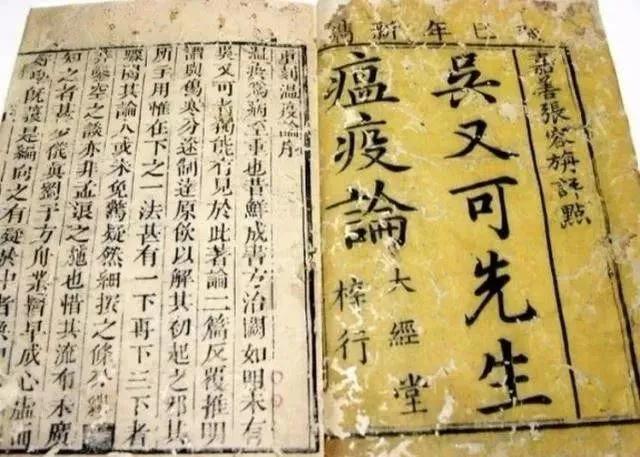 巳年新鐫
嘉善張容旃評點
吳又可先生
瘟疫論
大經堂
梓行
重刻溫疫論序
溫疫爲病至重也昔鮮成書方治闕如明末有
吳又可者獨能有見於此著論二篇反覆推明
謂與傷寒分途制達原飲以解其初起之邪其
所主用惟在下之一法甚有一下再下三下者
驟閱其論人或未免驚疑然細按之條分縷
非鑿空之談亦非孟浪之施也惜其流布未廣
知之者甚少儀眞劉子方舟業醫早成心虛而
好學旣護是編向之有疑於中者無